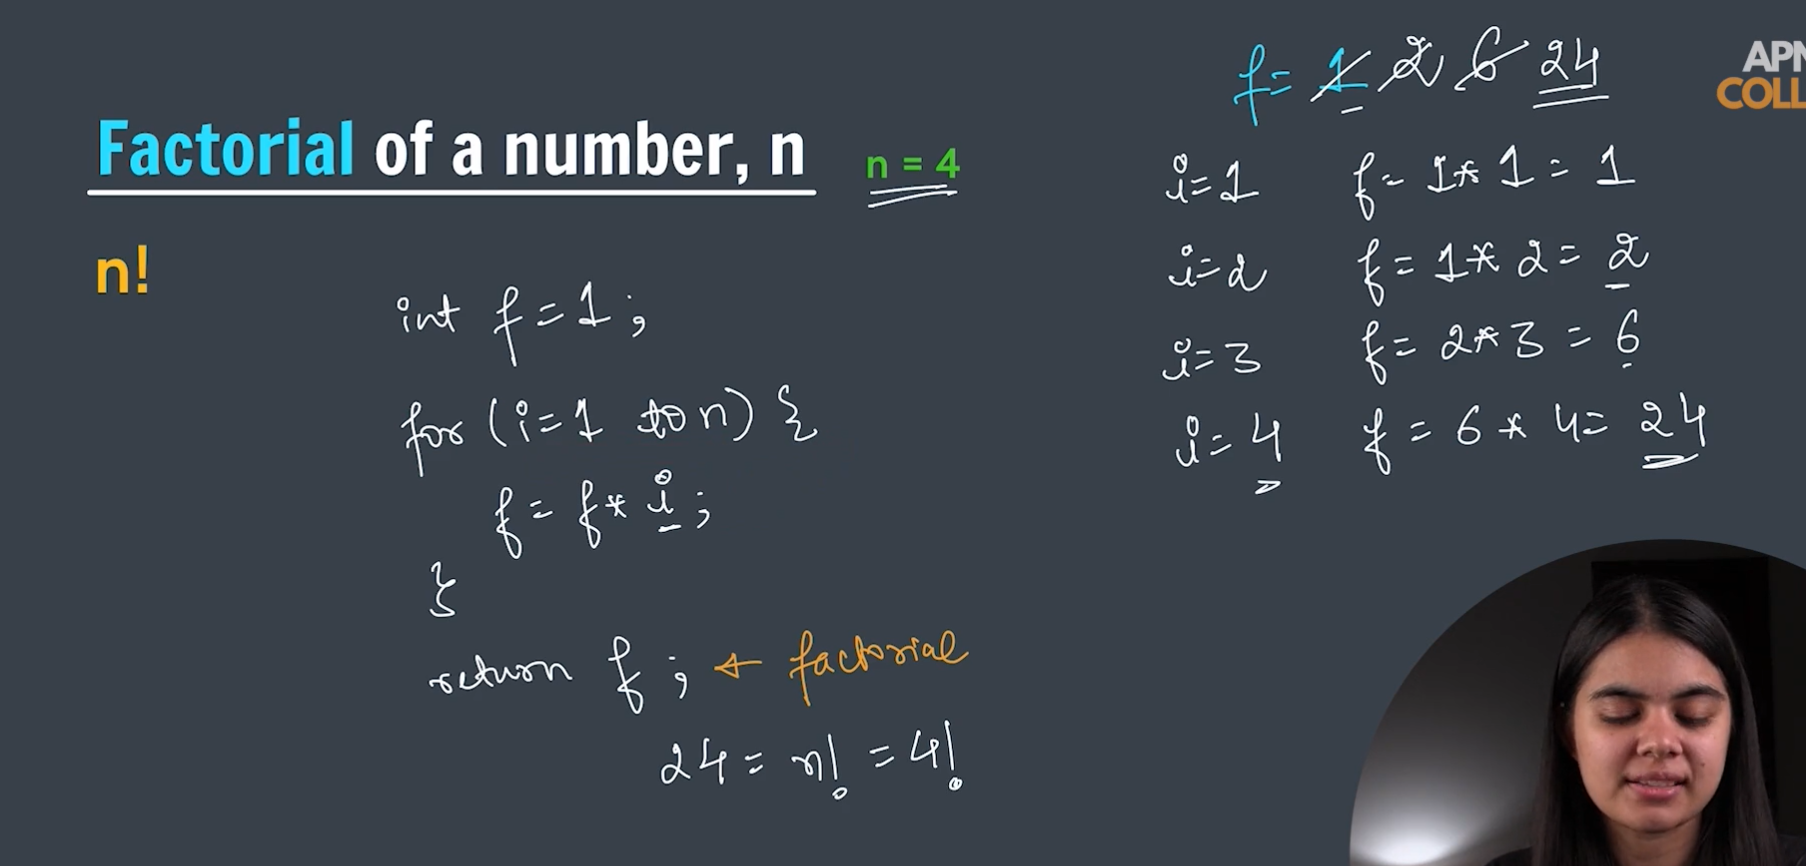 Factorial of a number, n
n = 4
n!
int f = 1 ;
for (i = 1 to n) {
f = f * i ;
}
return f ; ← factorial
24 = n! = 4!
f = 1 2 6 24
i=1 f = 1 * 1 = 1
i=2 f = 1 * 2 = 2
i=3 f = 2 * 3 = 6
i=4 f = 6 * 4 = 24
APN
COLL